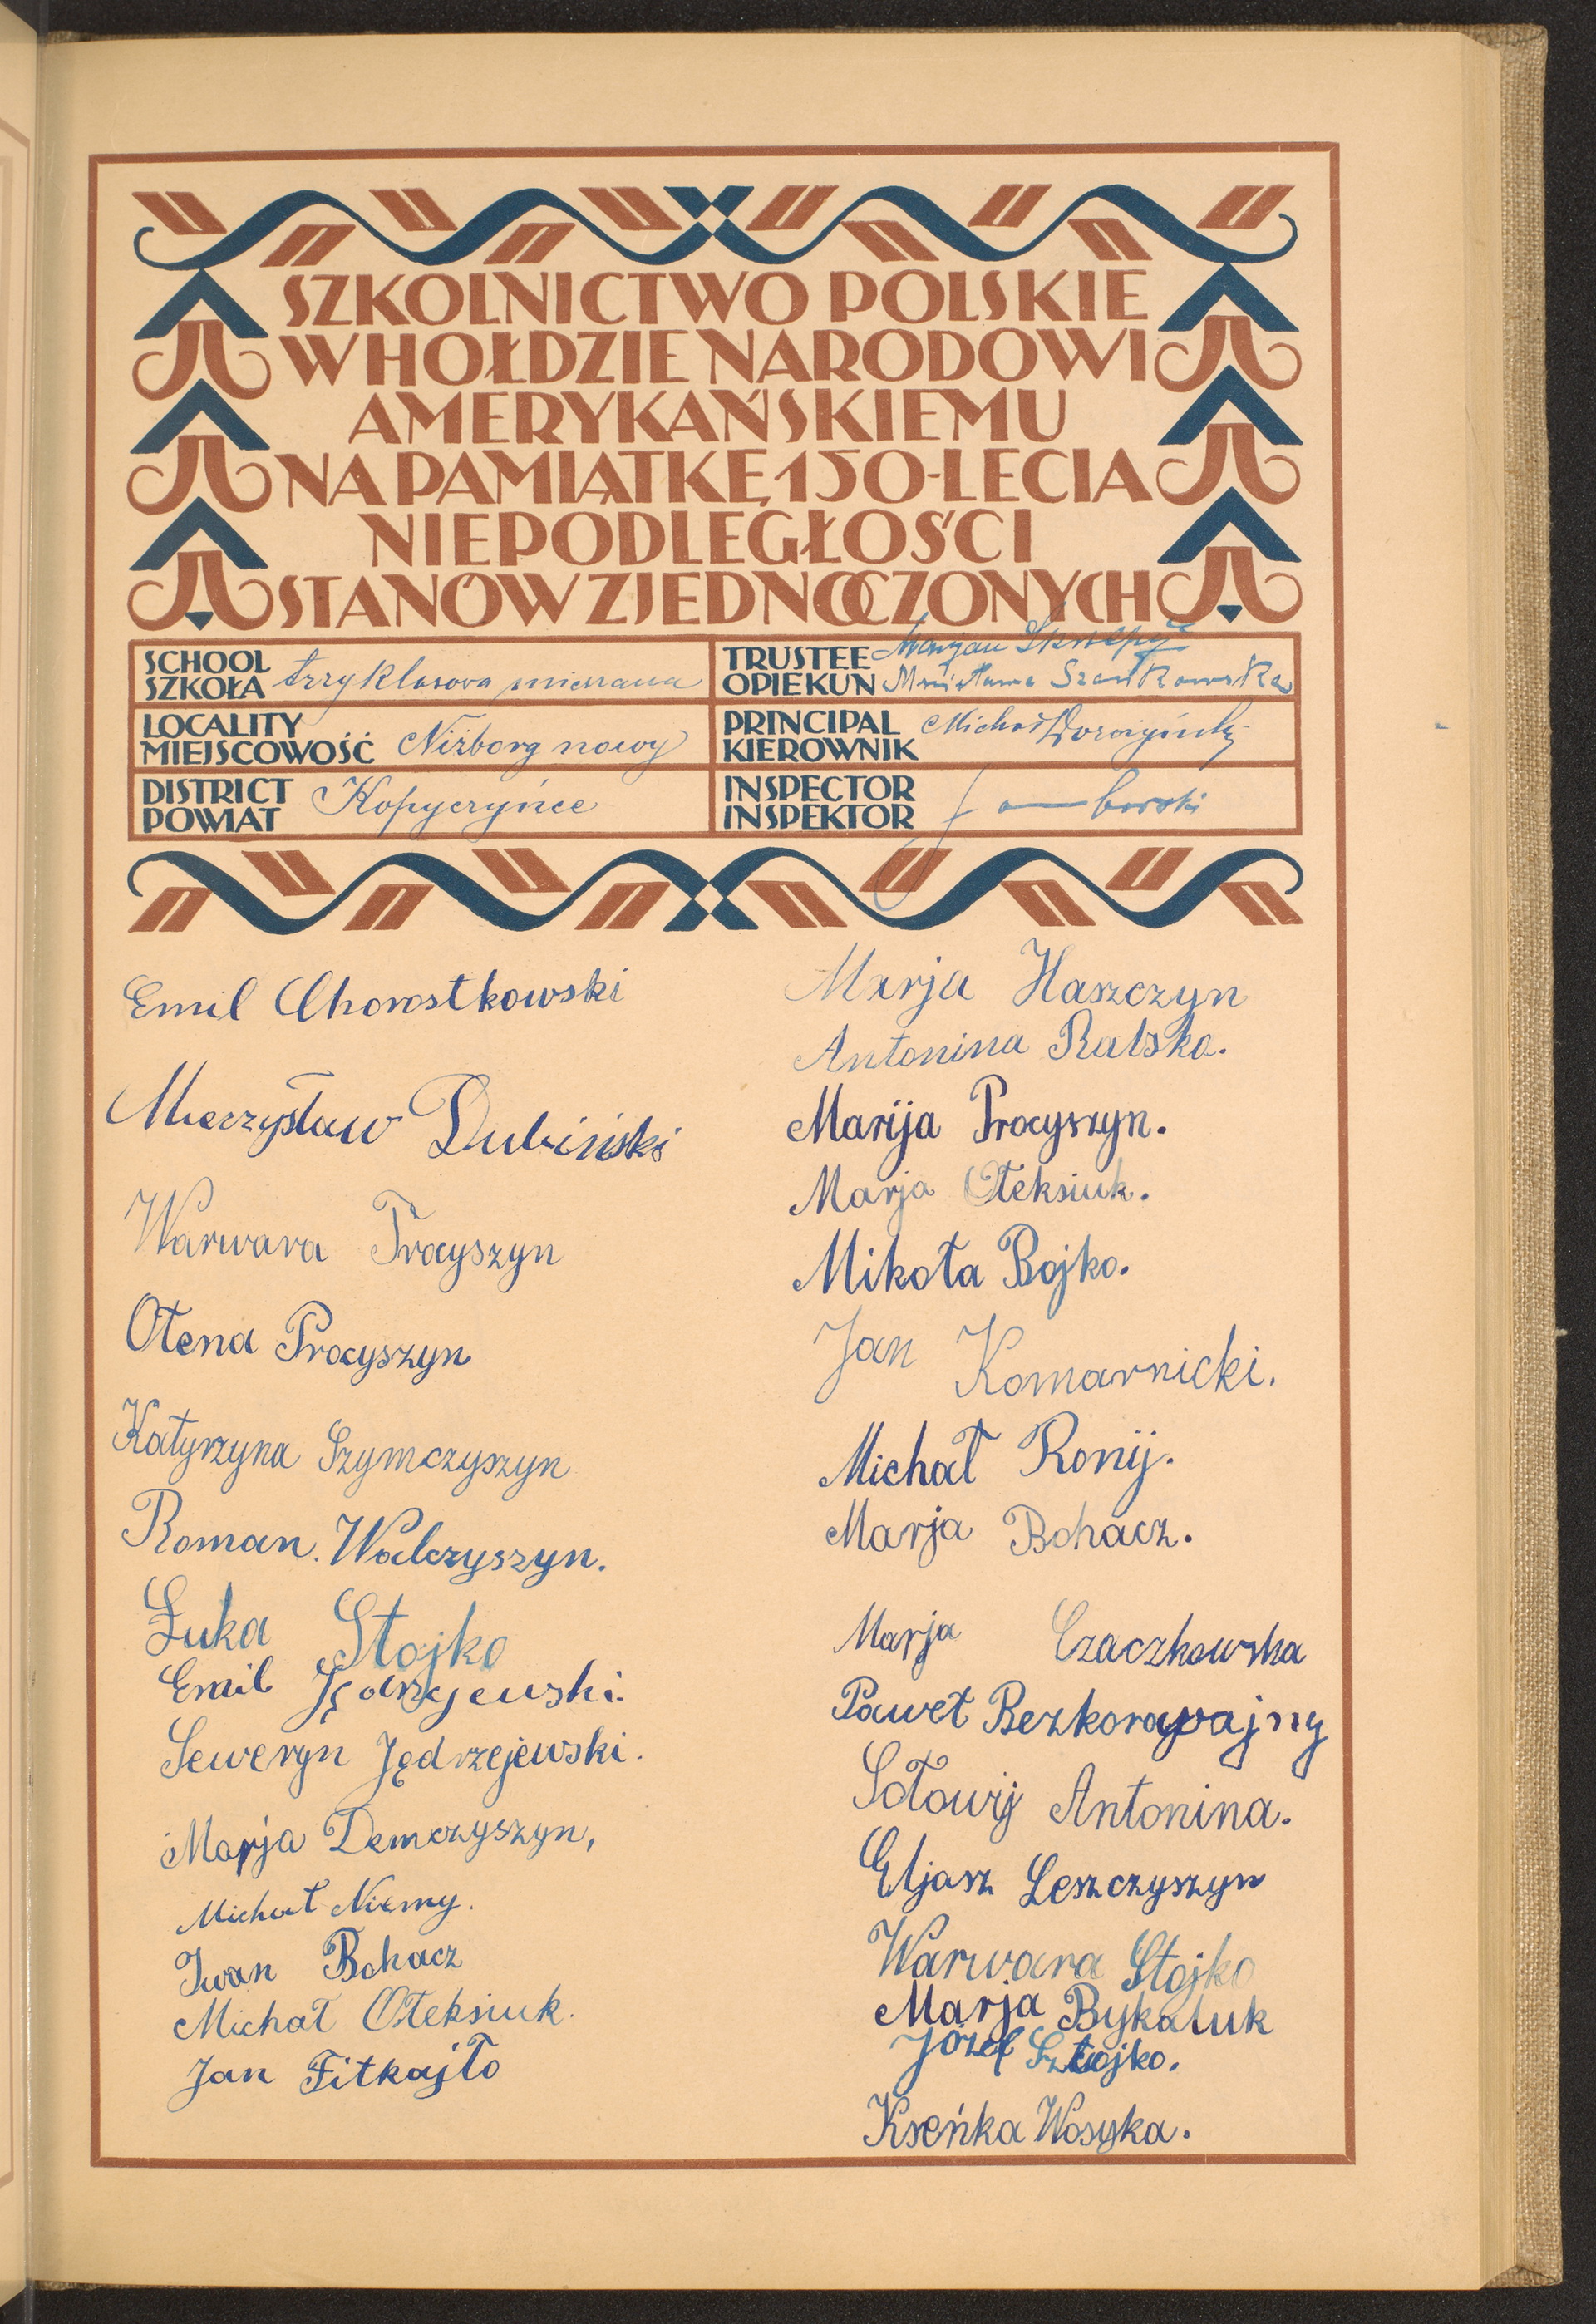 SZKOLNICTWO POLSKIE
W HOŁDZIE NARODOWI
AMERYKAŃSKIEMU
NA PAMIĄTKĘ 150-LECIA
NIEPODLEGŁOŚCI
STANÓW ZJEDNOCZONYCH
SCHOOL
SZKOŁA trzyklasowa mieszana
LOCALITY
MIEJSCOWOŚĆ Niżborg nowy
DISTRICT
POWIAT Kopyczyńce
TRUSTEE Marjan
OPIEKUN Szankowska
PRINCIPAL
KIEROWNIK Michał
INSPECTOR
INSPEKTOR
Emil Chorostkowski
Mieczysław Dubiński
Warwara Procyszyn
Ołena Procyszyn
Katyrzyna Szymczyszyn
Roman. Walczyszyn.
Łuka Stojko
Emil Jędrzejewski.
Seweryn Jędrzejewski.
Marja Demczyszyn,
Michał Niemy.
Iwan Bohacz
Michał Ołeksiuk.
Jan Fitkajło
Marja Haszczyn
Antonina Ralska.
Marija Procyszyn.
Marja Ołeksiuk.
Mikoła Bojko.
Jan Komarnicki.
Michał Ronij.
Marja Bohacz.
Marja Czaczkowska
Paweł Bezkorowajny
Sołowij Antonina.
Eljasz Leszczyszyn
Warwara Stojko
Marja Bykaluk
Józef Sztojko.
Kseńka Wosyka.